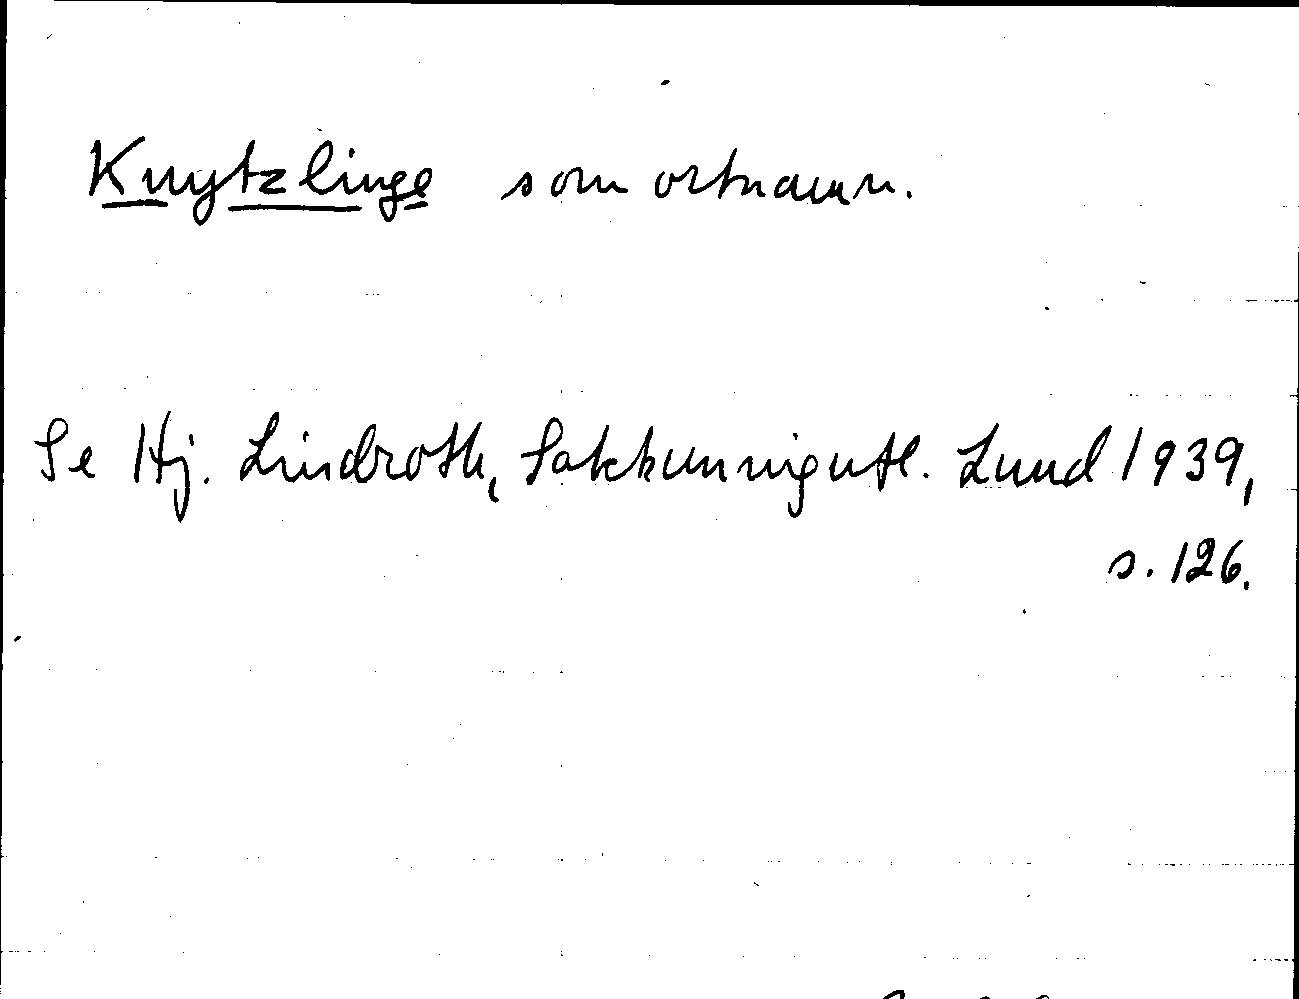 Knytzlinge som ortnamn.
Se Hj. Lindroth, Sakkunnigutl. Lund 1939,
s. 126.